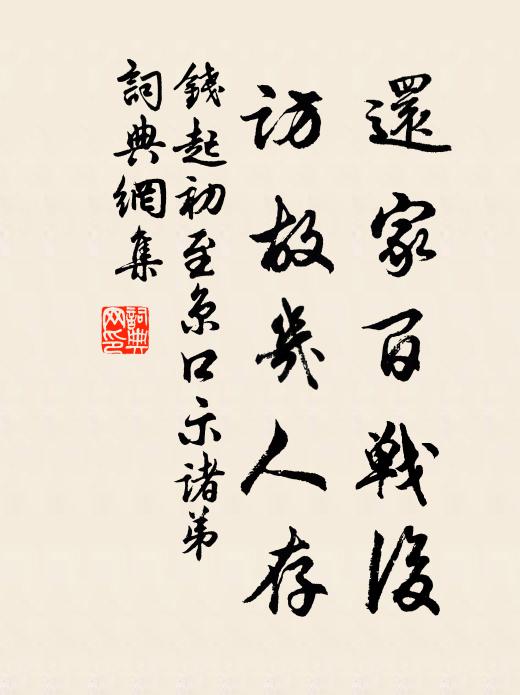 還家百戰後
訪故幾人存
錢起初至京口示諸弟
詞典網集
詞典网印